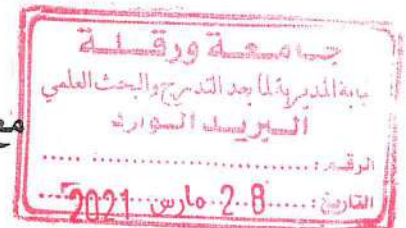 جامعة ورقلة
نيابة المديرية لما بعد التدرج والبحث العلمي
البريد الوارد
الرقم: ..........
التاريخ: ..... 2-8 مارس 2021